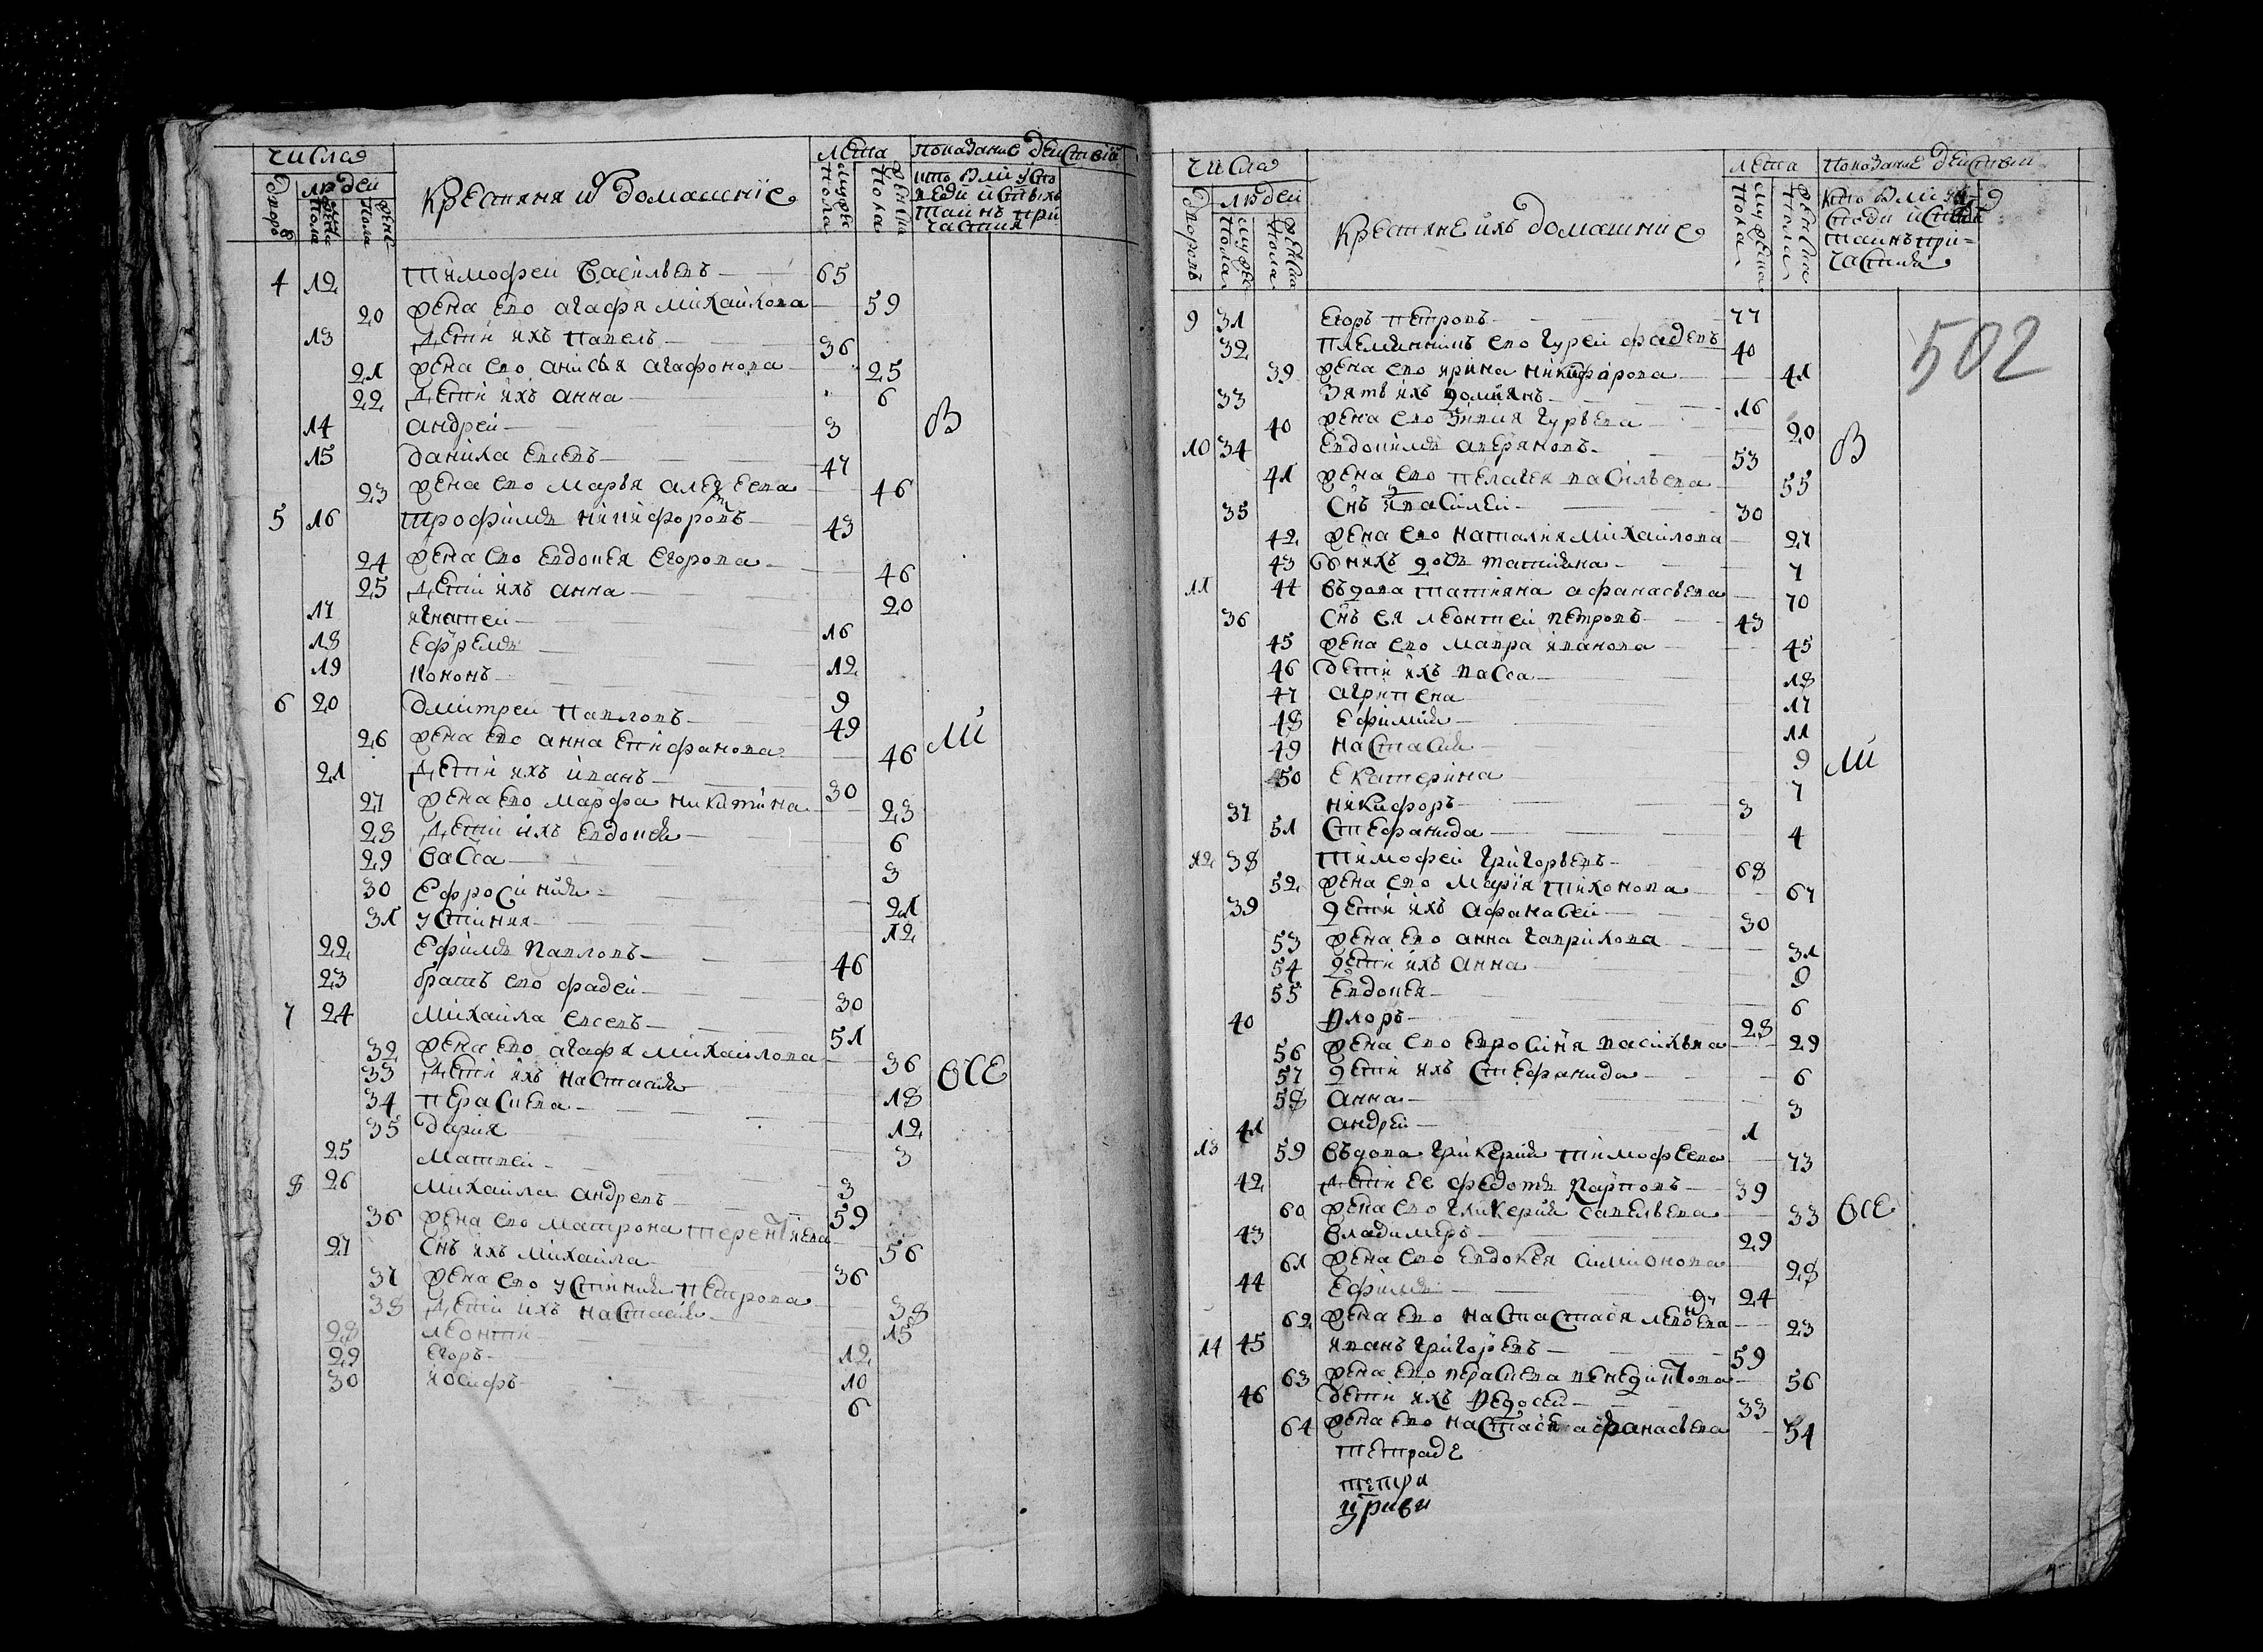 числа
Дворов
людей
мужеска пола
женска пола
Крестяня и домашніе
лета
мужеска пола
женска пола
показание действій
кто были у испо
веди и святыхъ
таинъ при
частия
4 12 тимофей василевъ 65
20 жена ево агафя михаилова 59
13 дети ихъ павелъ 36
21 жена ево анисья агафонова 25
22 дети ихъ анна 6
14 андрей 3 в
15 данила евсевъ 47
23 жена ево марья алеѯеева 46
5 16 трофимъ никифоровъ 43
24 жена ево евдокея егорова 46
25 дети ихъ анна 20
17 игнатей 16
18 ефремъ 12
19 кононъ 9
6 20 дмитрей павловъ 49
26 жена ево анна епифанова 46 ЛИ
21 дети ихъ иванъ 30
27 жена ево марфа никитина 23
28 дети ихъ евдокея 6
29 васса 3
30 ефросиния 21
31 устиния 12
22 ефимъ павловъ 46
23 братъ ево фадей 30
7 24 михаила евсевъ 51
32 жена ево агафя михаилова 36 ВСЕ
33 дети ихъ настасия 18
34 парасцева 12
35 дария 3
25 матвей 3
8 26 михаила андревъ 59
36 жена ево матрона терентиева 56
27 снъ ихъ михаила 36
37 жена ево устиния петрова 38
38 дети ихъ настасия 15
28 леонти 12
29 егоръ 10
30 иосифъ 6
числа
Дворовъ
людей
мужеска пола
женска пола
Крестяне ихъ домашние
лета
мужеска пола
женска пола
показание действий
кто были у
таинъ при=
частия
502
9 31 егоръ петровъ 77
32 племянникъ ево гурей фадевъ 40
39 жена ево ирина никифорова 41
33 зять ихъ домиянъ 16
40 жена ево гурьева 20
10 34 евдокимъ аверяновъ 53 в
41 жена ево пелагея васильева 55
35 снъ ихъ василей 30
42 жена ево наталия михаилова 27
43 у нихъ дочь татияна 7
11 44 въдова татияна афанасьева 70
36 снъ ея леонтей петровъ 43
45 жена ево мавра иванова 45
46 дети ихъ васса 18
47 агрипена 17
48 ефимия 11
49 настасия 9 ЛИ
50 екатерина 7
37 никифоръ 3
51 стефанида 4
12 38 тимофей григорьевъ 68
52 жена ево мария тихонова 67
39 дети ихъ афанасей 30
53 жена ево анна гаврилова 31
54 дети ихъ анна 9
55 евдокея 6
40 флоръ 28
56 жена ево евросиня василева 29
57 дети ихъ стефанида 6
58 анна 3
41 андрей 1
13 59 въдова гликерия тимофеева 73
42 дети ее федотъ карповъ 39
60 жена ево гликерия савельева 33 ВСЕ
43 владимеръ 29
61 жена ево евдокея симионова 28
44 ефимъ 24
62 жена ево настастасия 23
14 45 иванъ григоревъ 59
63 жена ево парасцева венедиктова 56
46 дети ихъ федосей 33
64 жена ево настасия афанасьева 54
тетраде
тетра